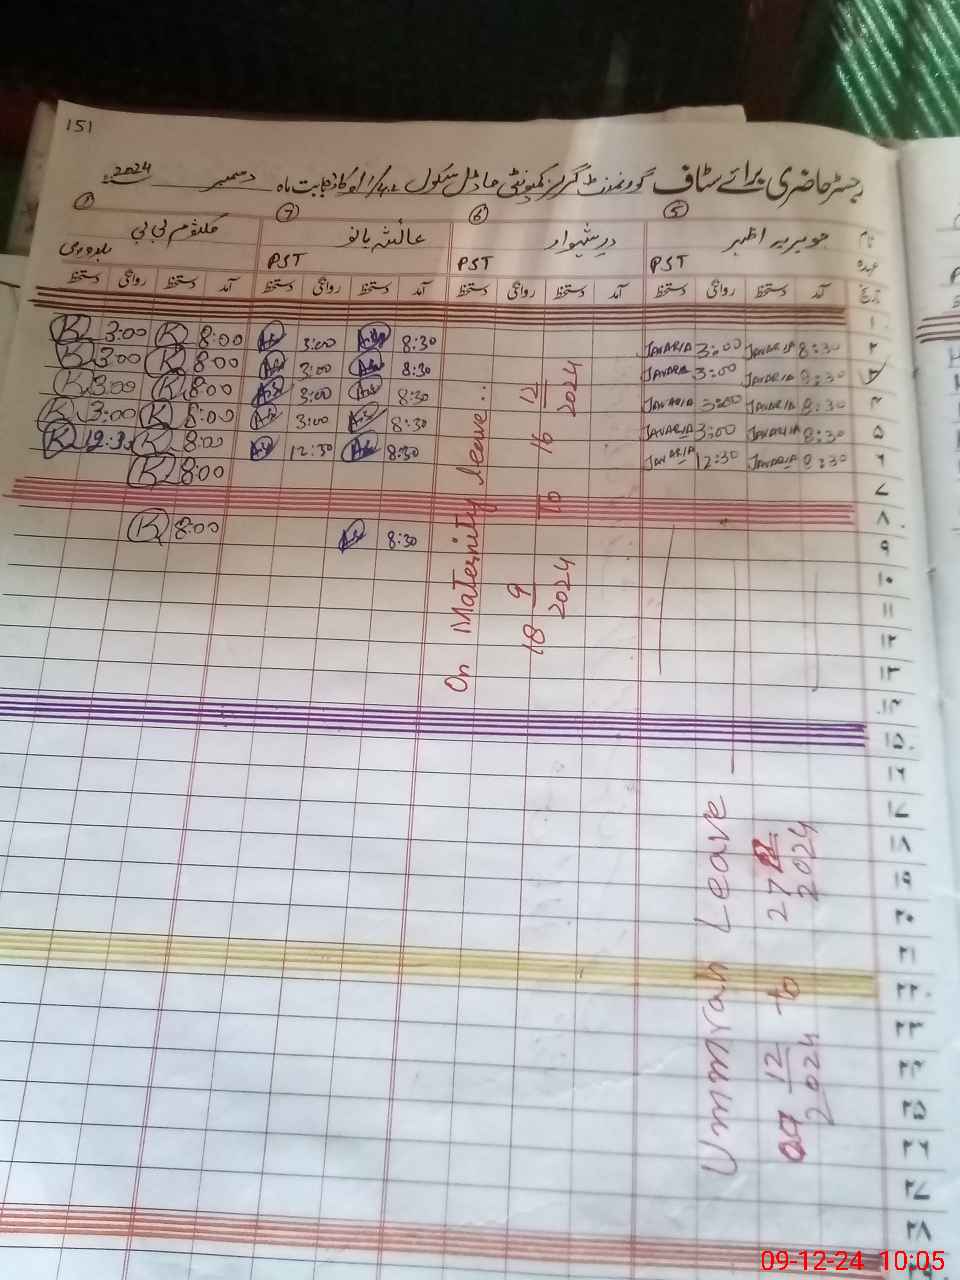 151
رجسٹر حاضری برائے سٹاف گورنمنٹ گرلز کمیونٹی ماڈل سکول بابت ماہ دسمبر 2024
5 6 7
نام جویریہ اظہر در شہوار عائشہ بانو کلثوم بی بی
عہدہ PST PST PST
تاریخ آمد دستخط روانگی دستخط آمد دستخط روانگی دستخط آمد دستخط روانگی دستخط آمد دستخط روانگی دستخط
۱
۲ 8:30 JAVARIA 3:00 JAVARIA 8:30 3:00 8:00 K 3:00 K
۳ 8:30 JAVARIA 3:00 JAVARIA 8:30 3:00 8:00 K 3:00 K
۴ 8:30 JAVARIA 3:00 JAVARIA 8:30 3:00 8:00 K 3:00 K
۵ 8:30 JAVARIA 3:00 JAVARIA 8:30 3:00 8:00 K 3:00 K
۶ 8:30 JAVARIA 12:30 JAVARIA 8:30 12:30 8:00 K 12:30 K
۷ 8:00 K
۸
۹ 8:30 8:00 K
۱۰
۱۱
۱۲
۱۳
۱۴
۱۵
۱۶
۱۷
۱۸
۱۹
۲۰
۲۱
۲۲
۲۳
۲۴
۲۵
۲۶
۲۷
۲۸
On Maternity leave
18 9 2024 to 16 12 2024
Ummrah Leave
09 12 2024 to 27 12 2024
09-12-24 10:05